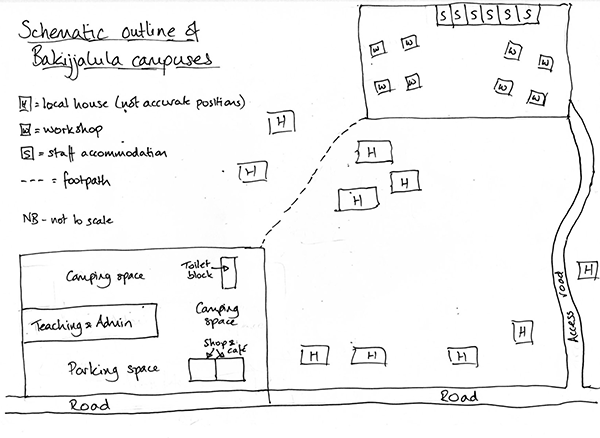 Schematic outline of
Bakijjalula campuses
H = local house (not accurate positions)
W = workshop
S = staff accommodation
--- = footpath
NB - not to scale
S S S S S S
W W W W
W W W W
H
H
H
H
H
H
Camping space
Toilet
block
Teaching & Admin
Camping
space
Shop &
café
Parking space
H
H
H
H
Access road
Road
Road